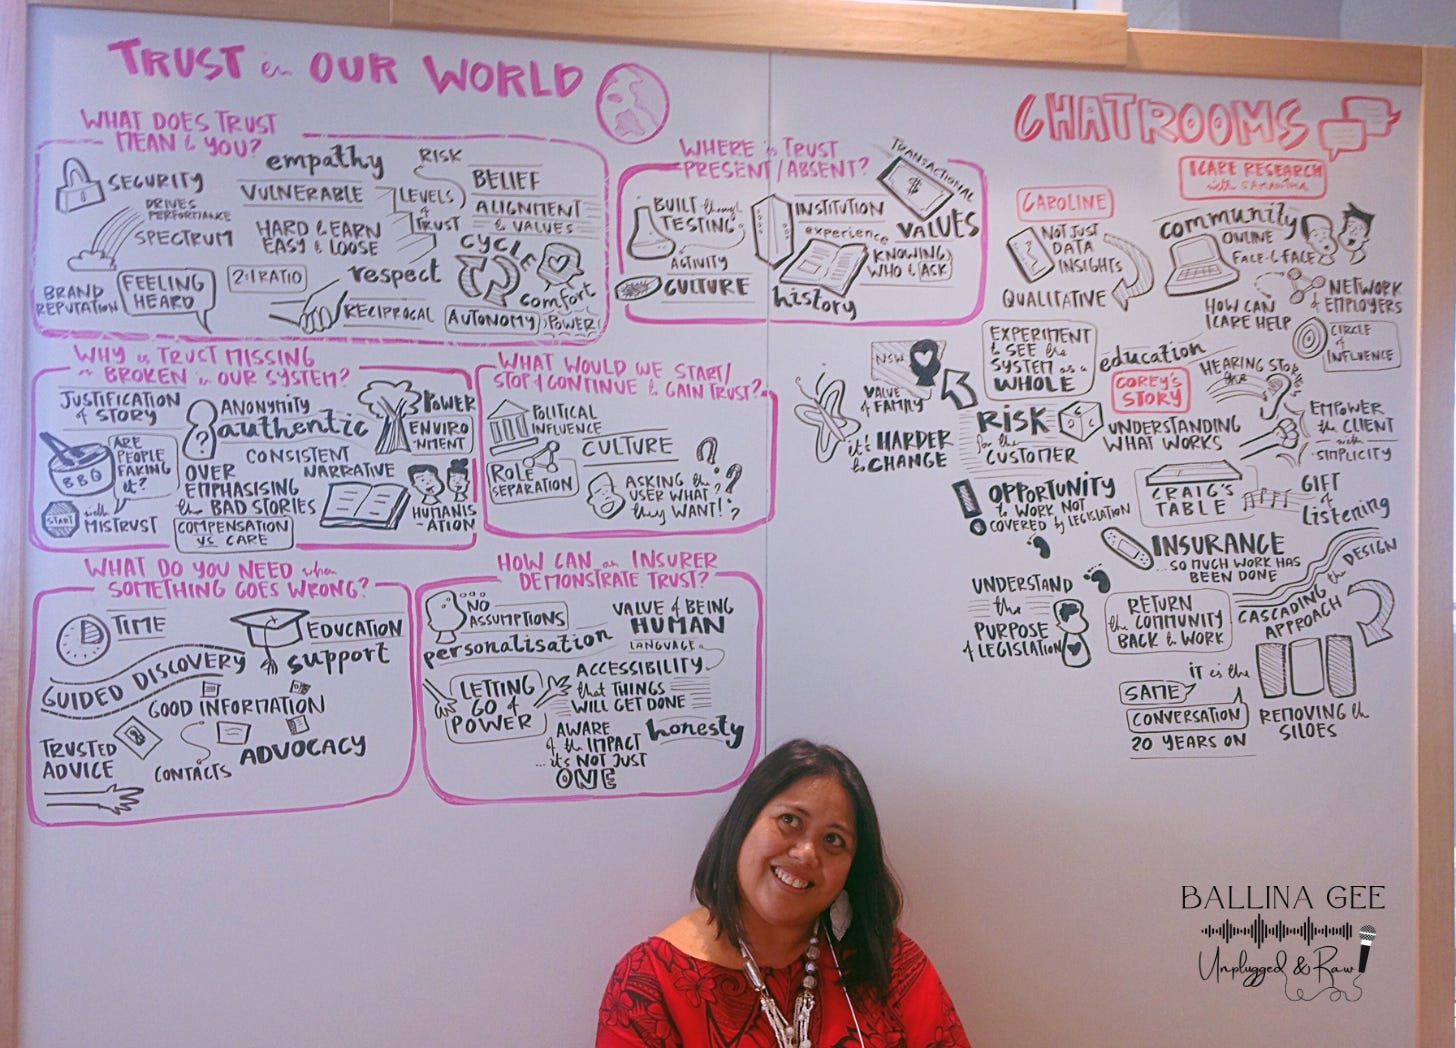 TRUST in OUR WORLD
WHAT DOES TRUST
MEAN & YOU?
SECURITY
DRIVES
PERFORMANCE
SPECTRUM
BRAND
REPUTATION
FEELING
HEARD
empathy
VULNERABLE
HARD & EARN
EASY & LOOSE
2:1 RATIO
respect
RECIPROCAL
RISK
LEVELS
of
TRUST
BELIEF
ALIGNMENT
& VALUES
CYCLE
comfort
AUTONOMY
POWER!
WHERE is TRUST
PRESENT/ABSENT?
BUILT through
TESTING
ACTIVITY
CULTURE
INSTITUTION
experience
history
TRANSACTIONAL
$
VALUES
KNOWING
WHO & ASK
WHY is TRUST MISSING
or BROKEN in OUR SYSTEM?
JUSTIFICATION
of STORY
BBQ
ARE
PEOPLE
FAKING
it?
START
with
MISTRUST
?
ANONYMITY
authentic
CONSISTENT
NARRATIVE
OVER
EMPHASISING
the BAD STORIES
COMPENSATION
VS CARE
POWER
ENVIRO
-NMENT
HUMANIS
-ATION
WHAT WOULD WE START/
STOP & CONTINUE & GAIN TRUST?
POLITICAL
INFLUENCE
ROLE
SEPARATION
CULTURE
ASKING the
USER WHAT
they WANT!
? ? ? ?
WHAT DO YOU NEED when
SOMETHING GOES WRONG?
TIME
EDUCATION
support
GUIDED DISCOVERY
GOOD INFORMATION
TRUSTED
ADVICE
CONTACTS
ADVOCACY
HOW CAN an INSURER
DEMONSTRATE TRUST?
NO
ASSUMPTIONS
personalisation
LETTING
GO of
POWER
VALUE of BEING
HUMAN
LANGUAGE
ACCESSIBILITY
that THINGS
WILL GET DONE
AWARE
of the IMPACT
...it's NOT JUST
ONE
honesty
CHATROOMS
ICARE RESEARCH
with SAMANTHA
CAROLINE
NOT JUST
DATA
INSIGHTS
QUALITATIVE
community
ONLINE
FACE-&-FACE
HOW CAN
ICARE HELP
NETWORK
of EMPLOYERS
CIRCLE
of
INFLUENCE
EXPERIMENT
& SEE the
SYSTEM as a
WHOLE
NSW
VALUE
of FAMILY
it's HARDER
to CHANGE
education
COREY'S
STORY
HEARING STORY
the
RISK
for the
CUSTOMER
UNDERSTANDING
WHAT WORKS
EMPOWER
the CLIENT
with
SIMPLICITY
OPPORTUNITY
& WORK NOT
COVERED by LEGISLATION
CRAIG'S
TABLE
GIFT
of
listening
INSURANCE
...SO MUCH WORK HAS
BEEN DONE
UNDERSTAND
the
PURPOSE
of LEGISLATION
RETURN
the COMMUNITY
BACK & WORK
CASCADING the DESIGN
APPROACH
IT is the
SAME
CONVERSATION
20 YEARS ON
REMOVING the
SILOES
BALLINA GEE
Unplugged & Raw